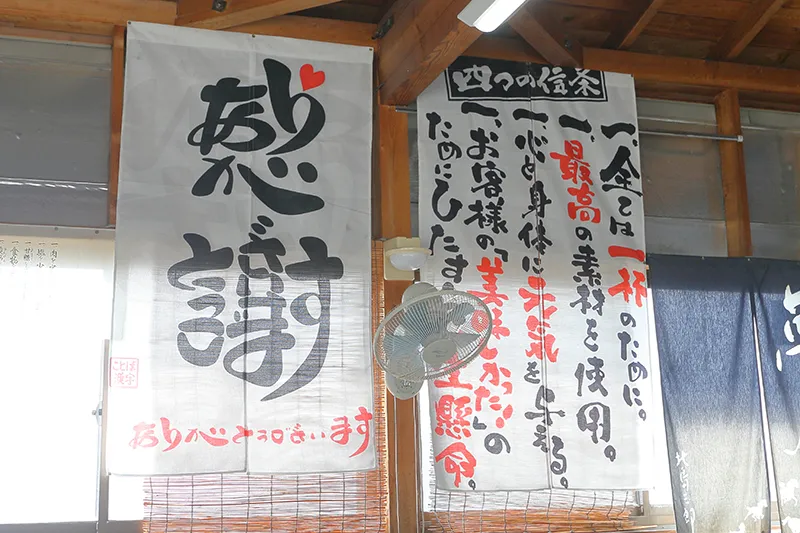 感謝
ありがとうございます
ことば
漢字
四つの信条
一、全ては一杯のために。
一、最高の素材を使用。
一、心と身体に元気を与える。
一、お客様の「美味しかった」の
ためにひたす 生懸命。